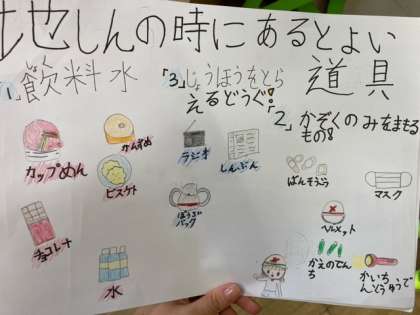 地しんの時にあるとよい
道具
「1」飲料水
しょく
カップめん
かんずめ
ビスケト
チョコレート
水
「3」じょうほうをとら
えるどうぐ!
ラジオ
しんぶん
ぼうさい
バック
「2」かぞくのみをまもる
もの
ばんそうこう
マスク
ヘルメット
かえのでん
ち
かいちゅうでんとう